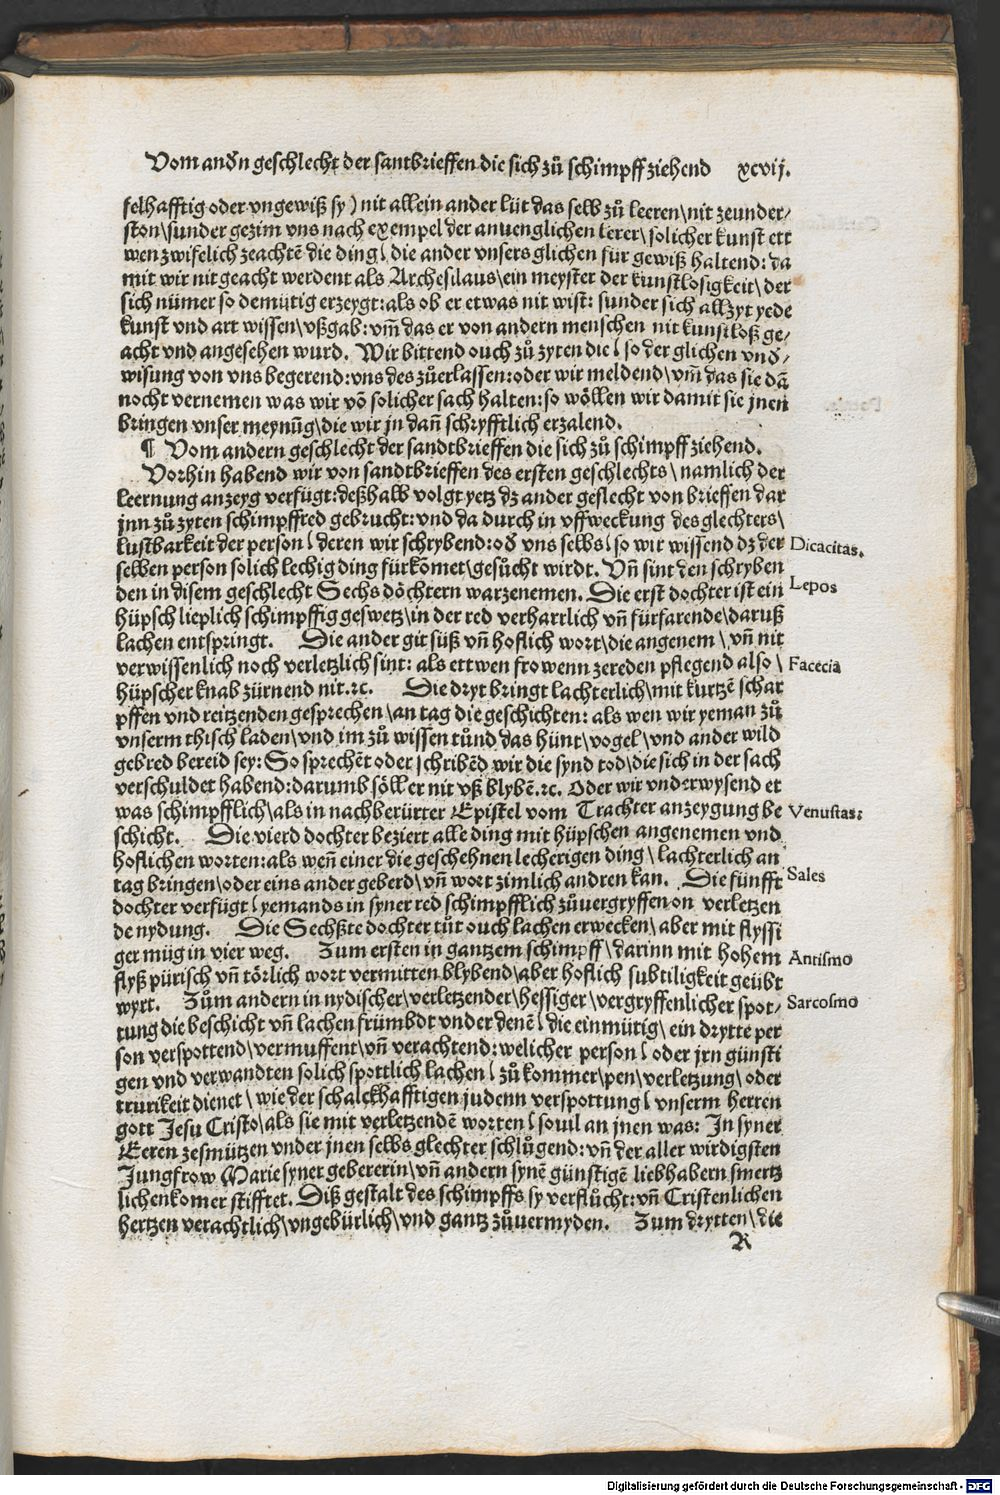 Vom andn geschlecht der santbrieffen die sich zů schimpff ziehend xcvij.
felhafftig oder vngewiß sy) nit allein ander lüt das selb zů leeren\nit zeunder⸗
ston\sunder gezim vns nach exempel der anuenglichen lerer/solicher kunst ett
wen zwifelich zeachtē die ding/die ander vnsers glichen für gewiß haltend: da
mit wir nit geacht werdent als Archesilaus\ein meyster der kunstlosigkeit\der
sich nümer so demütig erzeygt:als ob er etwas nit wist: sunder sich allzyt yede
kunst vnd art wissen/vßgab:vm̄ das er von andern menschen nit kunstloß ge⸗
acht vnd angesehen wurd. Wir bittend ouch zů zyten die/so der glichen vnd⸗
wisung von vns begerend:vns des zůerlassen:oder wir meldend\vm̄ das sie dā
nocht vernemen was wir võ solicher sach halten:so wöllen wir damit sie jnen
bringen vnser meynūg\die wir jn dañ schryfftlich erzalend.
¶ Vom andern geschlecht der sandtbrieffen die sich zů schimpff ziehend.
Vorhin habend wir von sandtbrieffen des ersten geschlechts\namlich der
leernung anzeyg verfügt:deßhalb volgt yetz dz ander geslecht von brieffen dar
jnn zů zyten schimpffred gebrucht:vnd da durch in vffweckung des glechters\
lustbarkeit der person/deren wir schrybend:od vns selbs/so wir wissend dz der
selben person solich lechig ding fürkomet\gesůcht wirdt. Vñ sint den schryben
den in disem geschlecht Sechs döchtern warzenemen. Die erst dochter ist ein
hüpsch lieplich schimpffig geswetz\in der red verharrlich vñ fürfarende/daruß
lachen entspringt. Die ander git süß vñ hoflich wort/die angenem\vñ nit
verwissenlich noch verletzlich sint: als ettwen frowenn zereden pflegend also\
hüpscher knab zürnend nit.ꝛc. Die dryt bringt lachterlich\mit kurtzē schar
pffen vnd reitzenden gesprechen\an tag die geschichten: als wen wir yeman zů
vnserm thisch laden/vnd im zů wissen tůnd das hünt/vogel/vnd ander wild
gebred bereid sey: So sprechēt oder schribēd wir die synd tod/die sich in der sach
verschuldet habend:darumb söll er nit vß blybē.ꝛc. Oder wir vnderwysend et
was schimpfflich\als in nachberürter Epistel vom Trachter anzeygung be
schicht. Die vierd dochter beziert alle ding mit hüpschen angenemen vnd
hoflichen worten:als weñ einer die geschehnen lecherigen ding\lachterlich an
tag bringen/oder eins ander geberd/vñ wort zimlich andren kan. Die fünfft
dochter verfügt/yemands in syner red schimpfflich zůuergryffen on verletzen
de nydung. Die Sechßte dochter tůt ouch lachen erwecken/aber mit flyssi
ger müg in vier weg. Zum ersten in gantzem schimpff\darinn mit hohem
flyß pürisch vñ törlich wort vermitten blybend\aber hoflich subtiligkeit geübt
wyrt. Zům andern in nydischer/verletzender/hessiger/vergryffenlicher spot⸗
tung die beschicht vñ lachen frümbdt vnder denē/die einmütig\ein drytte per
son verspottend/vermuffent/vñ verachtend:welicher person/oder jrn günsti
gen vnd verwandten solich spottlich lachen/zů kommer\pen/verletzung\oder
trurikeit dienet\wie der schalckhafftigen judenn verspottung/vnserm herren
gott Jesu Cristo/als sie mit verletzendē worten/souil an jnen was: In syner
Eeren zesmützen vnder jnen selbs glechter schlůgend:vñ der aller wirdigsten
Jungfrow Marie syner gebererin/vñ andern synē günstigē liebhabern smertz
lichen komer stifftet. Diß gestalt des schimpffs sy verflůcht:vñ Cristenlichen
hertzen verachtlich/vngebürlich/vnd gantz zůuermyden. Zum drytten/die
R
Dicacitas.
Lepos
Facecia
Venustas:
Sales
Antismo
Sarcosmo
Digitalisierung gefördert durch die Deutsche Forschungsgemeinschaft - DFG